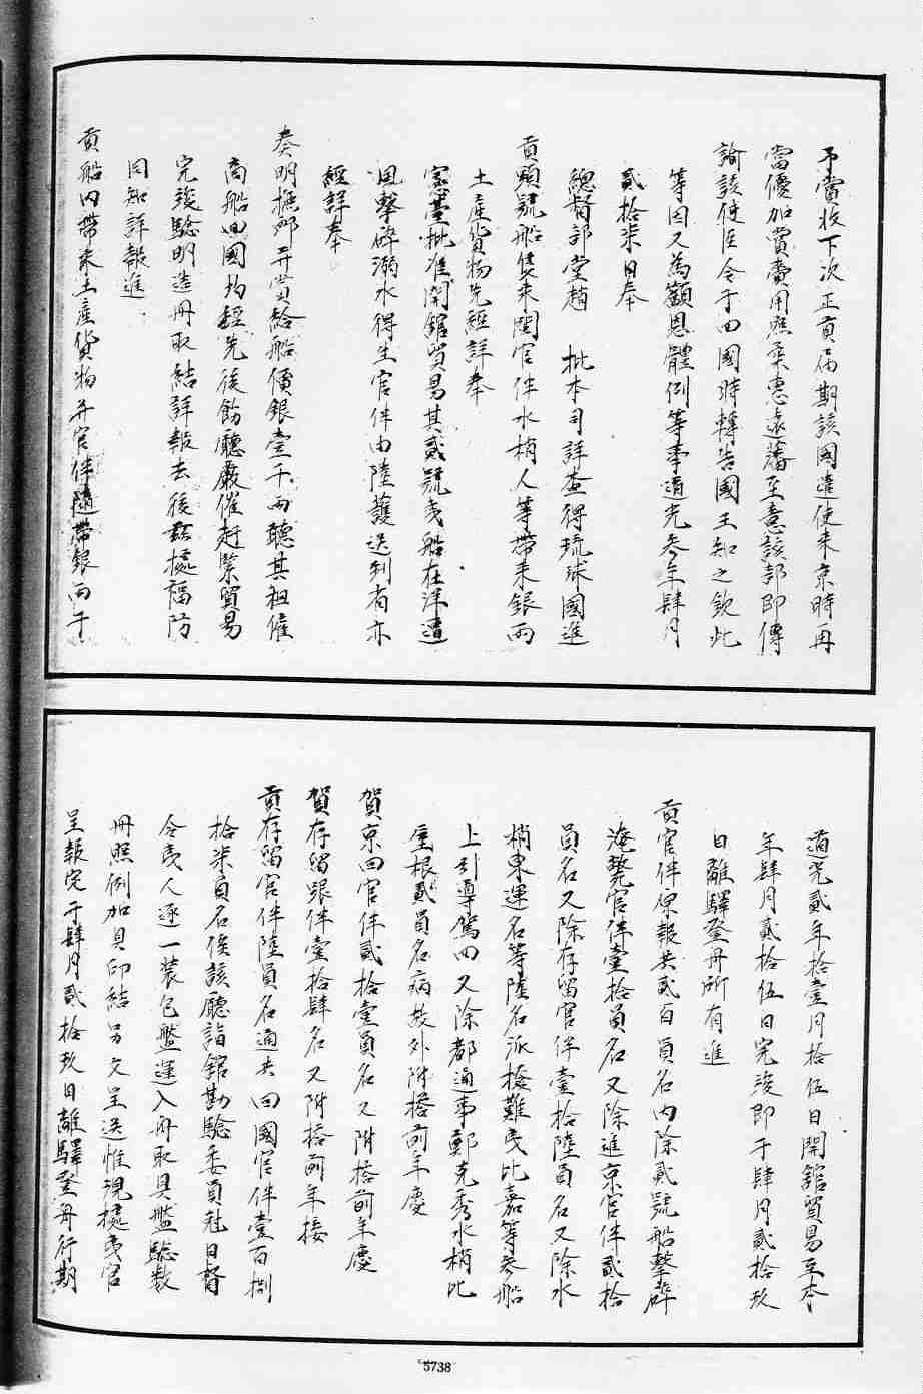 予當收下次正貢届期該國遣使来京時再
當優加賞賚用照柔惠遠藩至意該部即傳
諭該使臣令于回國時轉告國王知之欽此
等因又為籲恩體例等事道光叁年肆月
貳拾柒日奉
總督部堂趙 批本司詳查得琉球國進
貢頭號船隻来閩官伴水梢人等帶来銀兩
土産貨物先經詳奉
憲臺批准開館貿易其貳號夷船在洋遭
風擊碎溺水得生官伴由陸護送到省亦
經詳奉
奏明撫卹并賞給船價銀壹千兩聽其租僱
商船回國均經先後飭廳嚴催赶緊貿易
完竣驗明造册取結詳報去後兹據福防
同知詳報進
貢船内帶来土産貨物并官伴隨帶銀兩于
道光貳年拾壹月拾伍日開館貿易至本
年肆月貳拾伍日完竣即于肆月貳拾玖
日離驛登舟所有進
貢官伴原報共貳百員名内除貳號船擊碎
淹斃官伴壹拾員名又除進京官伴貳拾
員名又除存留官伴壹拾陸員名又除水
梢東運名等陸名派撥難夷比嘉等叁船
上引導駕回又除都通事鄭克秀水梢比
屋根貳員名病故外附搭前年慶
賀京回官伴貳拾壹員名又附搭前年慶
賀存留跟伴壹拾肆名又附搭前年接
貢存留官伴陸員名通共回國官伴壹百捌
拾柒員名俟該廳詣館勘驗委員尅日督
令夷人逐一裝包盤運入舟取具盤驗数
册照例加具印結另文呈送惟現據夷官
呈報定于肆月貳拾玖日離驛登舟行期
5738